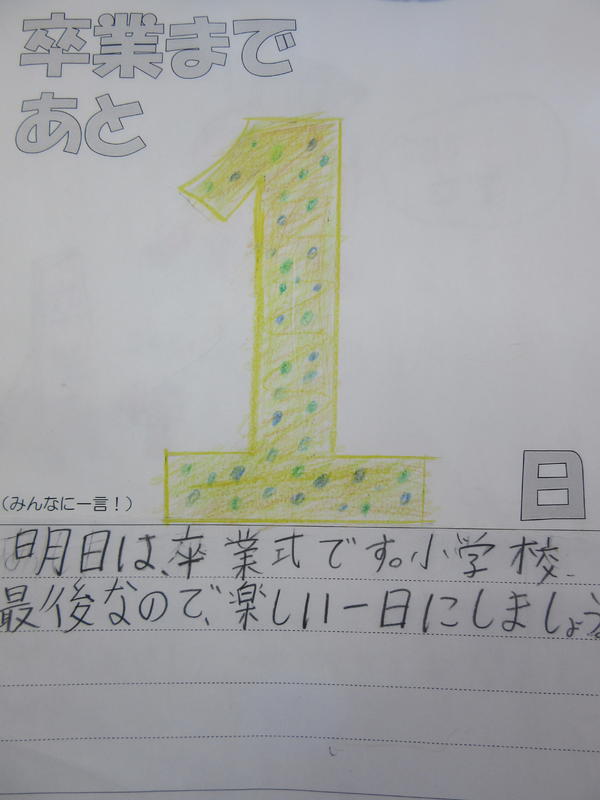 卒業まで
あと
1
日
(みんなに一言!)
明日は、卒業式です。小学校
最後なので、楽しい一日にしましょう。